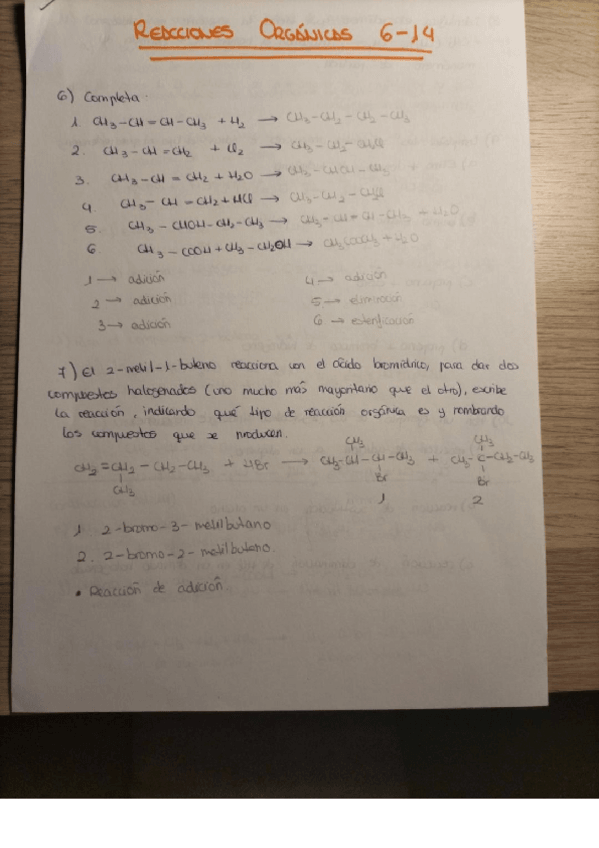 REACCIONES ORGÁNICAS 6-14
6) Completa:
1. CH3-CH=CH-CH3 + H2 → CH3-CH2-CH2-CH3
2. CH3-CH=CH2 + Cl2 →
3. CH3-CH=CH2 + H2O → CH3-CHOH-CH3
4. CH3-CH=CH2 + HCl →
5. CH3-CHOH-CH2-CH3 → CH3-CH=CH-CH3 + H2O
6. CH3-COOH + CH3-CH2OH →
1 → adición 4 → adición
2 → adición 5 → eliminación
3 → adición 6 → esterificación
7) El 2-metil-1-buteno reacciona con el ácido bromídrico, para dar dos
compuestos halogenados (uno mucho más mayoritario que el otro), escribe
la reacción, indicando qué tipo de reacción orgánica es y nombrando
los compuestos que se producen.
CH3 CH3
CH2=CH2-CH2-CH3 + HBr → CH3-CH-CH-CH3 + CH3-C-CH2-CH3
CH3 Br Br
1 2
1. 2-bromo-3-metilbutano
2. 2-bromo-2-metilbutano.
• Reacción de adición